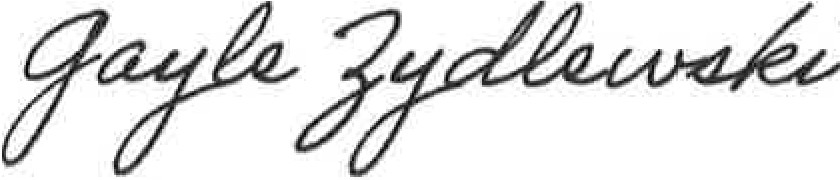 Gayle Zydlewski